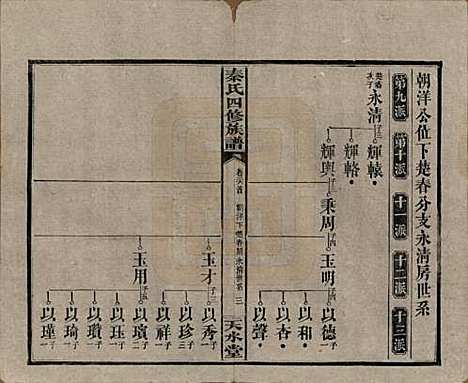 朝洋公位下楚春分支永清房世系
第九派
第十派
十一派
十二派
十三派
楚春次子
永清
輝轅
輝輅
輝輿
秉周
玉明
以德
以和
以杏
以聲
秦氏四修族譜
天水堂
玉才
以秀
以珍
以祥
玉用
以璸
以珏
以瓚
以琦
以瑾